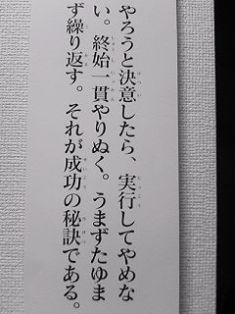 やろうと決意したら、実行してやめな
い。終始一貫やりぬく。うまずたゆま
ず繰り返す。それが成功の秘訣である。